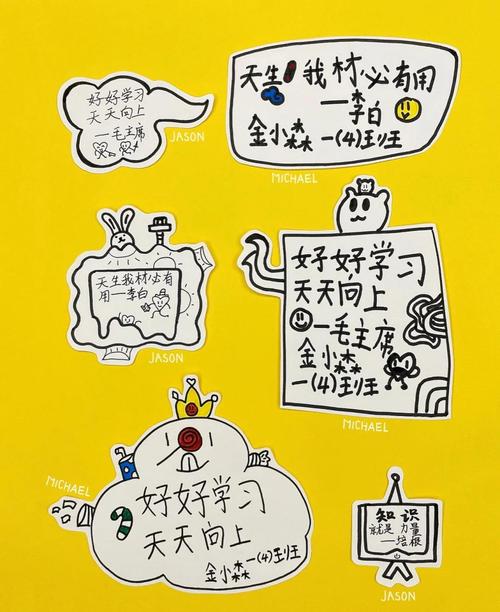 好好学习
天天向上
—毛主席
JASON
天生我材必有用
—李白
金小森 一(4)班
MICHAEL
天生我材必有
用—李白
JASON
好好学习
天天向上
—毛主席
金小森
一(4)班
MICHAEL
MICHAEL
好好学习
天天向上
金小森 一(4)班
知识
就是力量
—培根
JASON